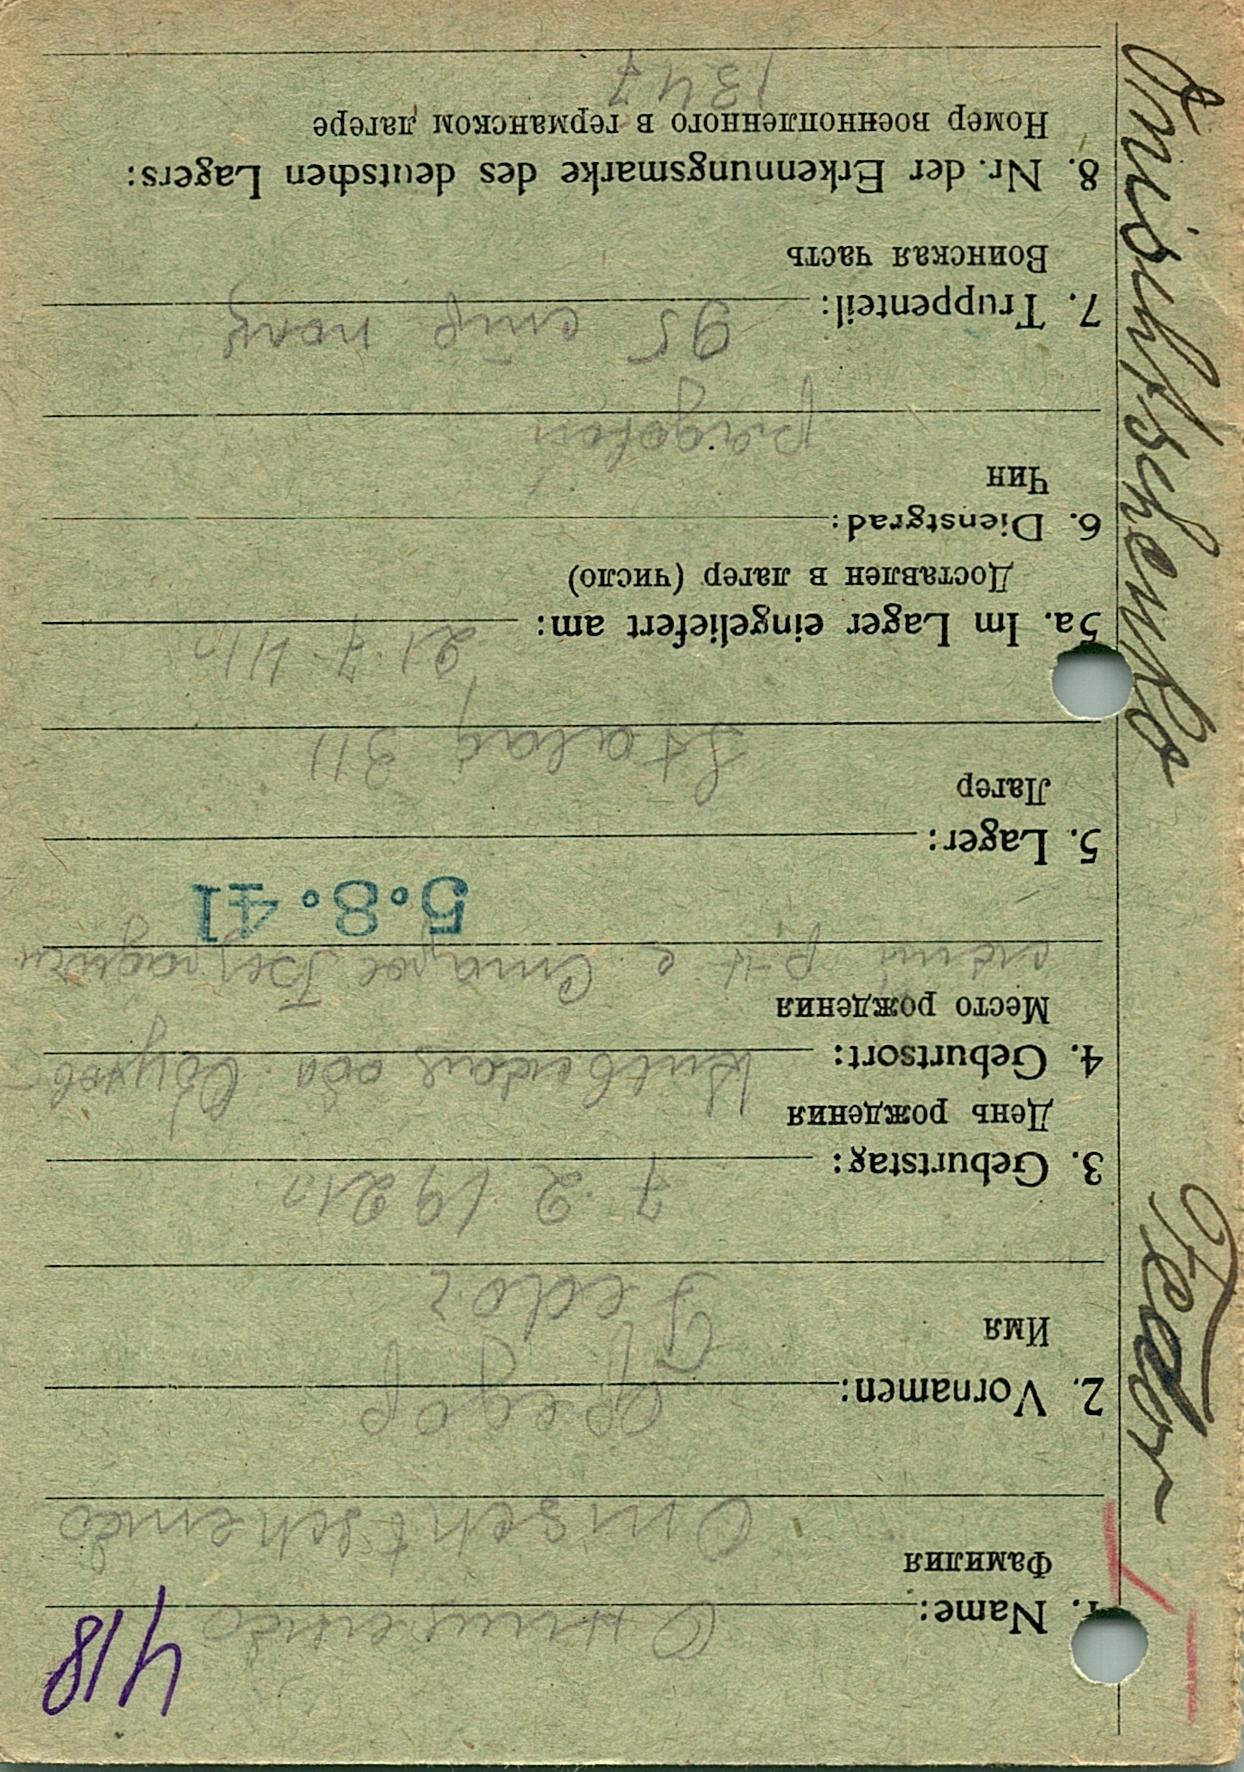 418
1. Name:
Фамилия
Omschtschenko
2. Vornamen: Федор
Имя
Fedor
3. Geburtstag: 7. 2 1921
День рождения
4. Geburtsort:
Место рождения
р-н с. Старое
5. 8. 41
5. Lager:
Лагер
Stalag 311
5a. Im Lager eingeliefert am: 21 7 41
Доставлен в лагер (число)
6. Dienstgrad:
Чин
рядовой
7. Truppenteil: 95 стр полк
Воинская часть
8. Nr. der Erkennungsmarke des deutschen Lagers:
Номер военнопленного в германском лагере
1347
Fedor